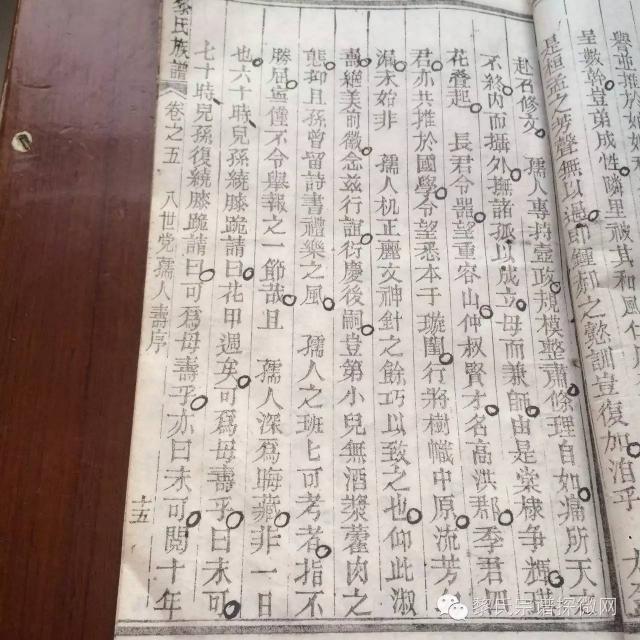 呈數飴豈弟成性隣里被其和風化
是桓孟之芳聲無以過郝之懿訓豈復加泊乎
赴召修文 孺人專持壺政規模整肅條理自如痛所天
不終內而攝外撫諸孤以成立母而兼師由是棠棣爭輝
花疊起 長君令器望重容山仲叔賢才名高洪郡季君
君亦共推於國學令望悉本于璇閨行將樹幟中原流芳
未始非 孺人机正麗文神針之餘巧以致之也仰此淑
善絕美前徽念茲行誼衍慶後嗣豈第小兒無酒漿藿肉之
態抑且孫曾留詩書禮樂之風 孺人之班七可考者指不
勝屈與僮不令舉報之一節哉且 孺人深爲晦藏非一日
也六十時兒孫統膝跪請曰花甲週矣可爲母壽乎曰未可
七十時兒孫復繞膝跪請曰可爲母壽乎亦曰未可閱十年
黎氏族譜 卷之五 八世党孺人壽序 十五
黎氏宗谱探微网